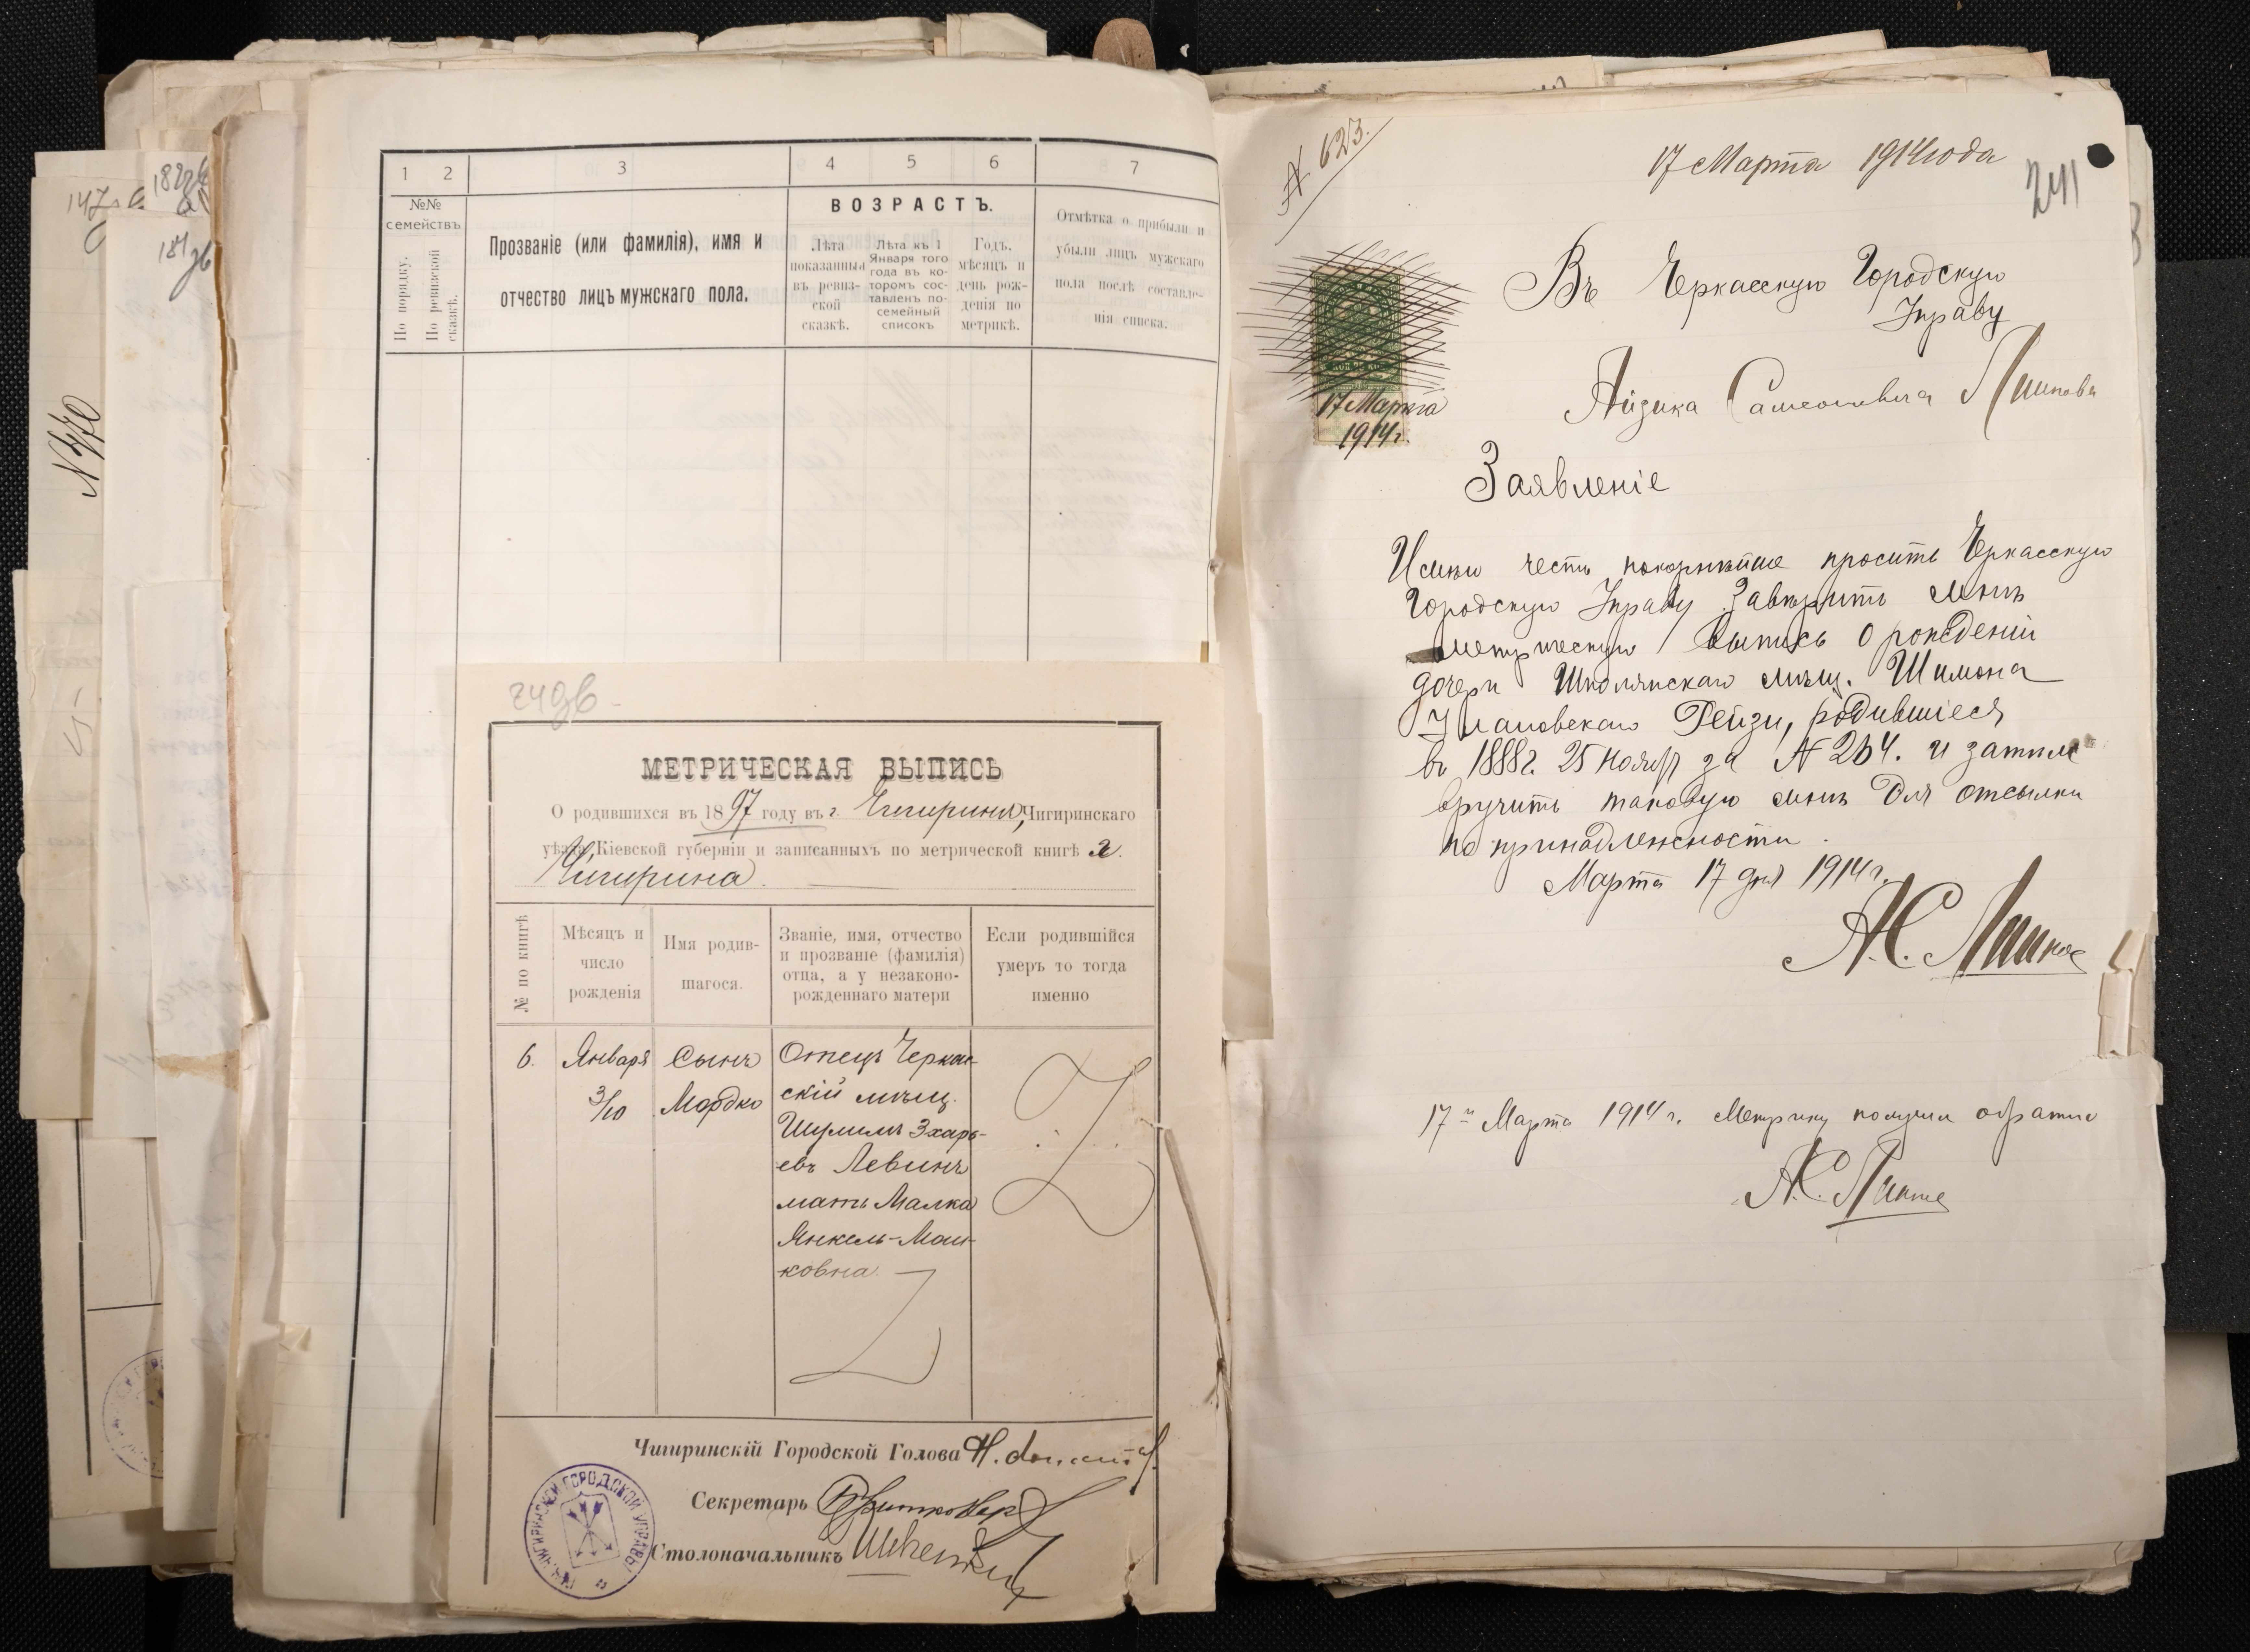 147
182
181
N 770
1 2 3 4 5 6 7
№№ семействъ
По порядку.
По ревизской сказкѣ.
Прозваніе (или фамилія), имя и
отчество лицъ мужскаго пола.
ВОЗРАСТЪ.
Лѣта
показанныя
въ ревиз-
ской
сказкѣ.
Лѣта къ 1
Января того
года въ ко-
торомъ сос-
тавленъ по-
семейный
списокъ
Годъ,
мѣсяцъ и
день рож-
денія по
метрикѣ.
Отмѣтка о прибыли и
убыли лицъ мужскаго
пола послѣ составле-
нія списка.
МЕТРИЧЕСКАЯ ВЫПИСЬ
О родившихся въ 1897 году въ г. Чигиринѣ, Чигиринскаго
уѣзда Кіевской губерніи и записанныхъ по метрической книгѣ г.
Чигирина.
№ по книгѣ
Мѣсяцъ и
число
рожденія
Имя родив-
шагося.
Званіе, имя, отчество
и прозваніе (фамилія)
отца, а у незаконо-
рожденнаго матери
Если родившійся
умеръ то тогда
именно
6. Января Сынъ Отецъ Черкас-
3/10 Мордко скій мѣщ.
Шулимъ Зхарь-
евъ Левинъ
мать Малка
Янкель-Мош-
ковна
Чигиринскій Городской Голова
Секретарь
Столоначальникъ
ЧИГИРИНСКОЙ ГОРОДСКОЙ УПРАВЫ
№ 623.
17 Марта 1914 года
241
Въ Черкасскую Городскую
Управу
17 Марта
1914 г.
Айзика Самсоновича Липковъ
Заявленіе
Имѣю честь покорнѣйше просить Черкасскую
Городскую Управу Завѣрить мнѣ
метрическую выпись о рожденіи
дочери Шполянскаго мѣщ. Шимона
Рейзи, родившіеся
въ 1888 г. 25 Ноября за № 264. и затѣмъ
вручить таковую мнѣ для отсылки
по принадлежности.
Марта 17 дня 1914 г.
А. С.
17 Марта 1914 г. Метрику получил обратно
А. С.